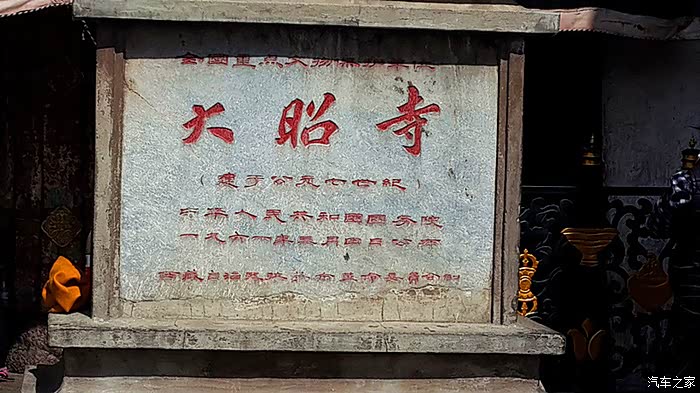 全國重点文物保护单位
大昭寺
(建于公元七世紀)
中華人民共和國國务院
一九六一年三月四日公布
西藏自治区 委員会
汽车之家